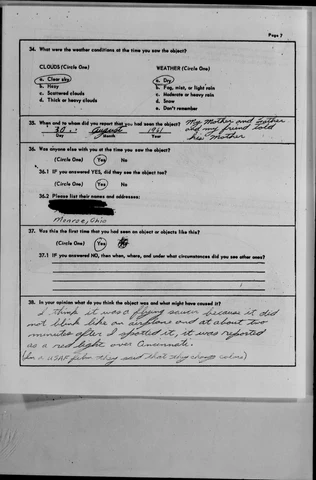 Page 7
34. What were the weather conditions at the time you saw the object?
CLOUDS (Circle One) WEATHER (Circle One)
a. Clear sky a. Dry
b. Hazy b. Fog, mist, or light rain
c. Scattered clouds c. Moderate or heavy rain
d. Thick or heavy clouds d. Snow
e. Don't remember
35. When and to whom did you report that you had seen the object?
30 August 1961
Day Month Year
My Mother and Father
and my friend told
his Mother
36. Was anyone else with you at the time you saw the object?
(Circle One) Yes No
36.1 IF you answered YES, did they see the object too?
(Circle One) Yes No
36.2 Please list their names and addresses:
Monroe, Ohio
37. Was this the first time that you had seen an object or objects like this?
(Circle One) Yes No
37.1 IF you answered NO, then when, where, and under what circumstances did you see other ones?
38. In your opinion what do you think the object was and what might have caused it?
I think it was a flying saucer because it did
not blink like an airplane and at about two
minutes after I spotted it, it was reported
as a red light over Cincinnati.
(In a USAF film they said that they change colors)